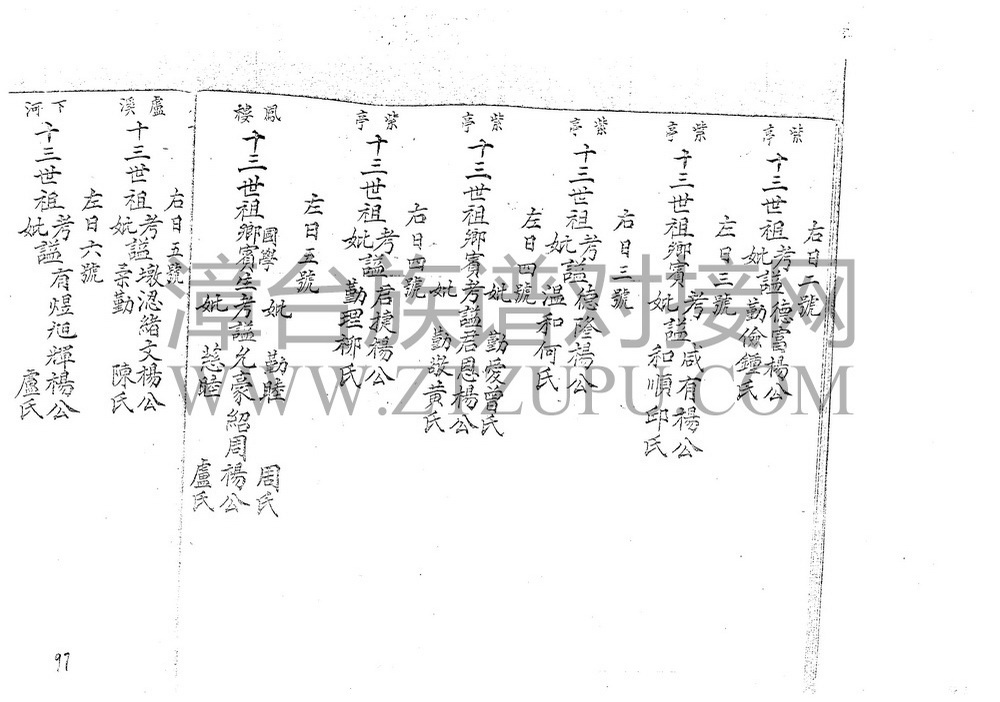 右日二號
紫亭
十三世祖考妣謚德富楊公
勤儉鍾氏
左日三號
紫亭
十三世祖鄉賓考妣謚咸有楊公
和順邱氏
右日三號
紫亭
十三世祖考妣謚德隆楊公
溫和何氏
左日四號
紫亭
十三世祖鄉賓考謚君恩楊公
妣勤愛曾氏
妣勤敬黃氏
右日四號
紫亭
十三世祖考妣謚君捷楊公
勤理柳氏
左日五號
鳳樓
十三世祖鄉賓國學生考謚允豪紹周楊公
妣勤睦周氏
妣慈睦盧氏
右日五號
盧溪
十三世祖考妣謚敦認緒文楊公
勤陳氏
左日六號
下河
十三世祖考妣謚有煜旭輝楊公
盧氏
97
漳台族谱对接网
WWW.ZTZUPU.COM